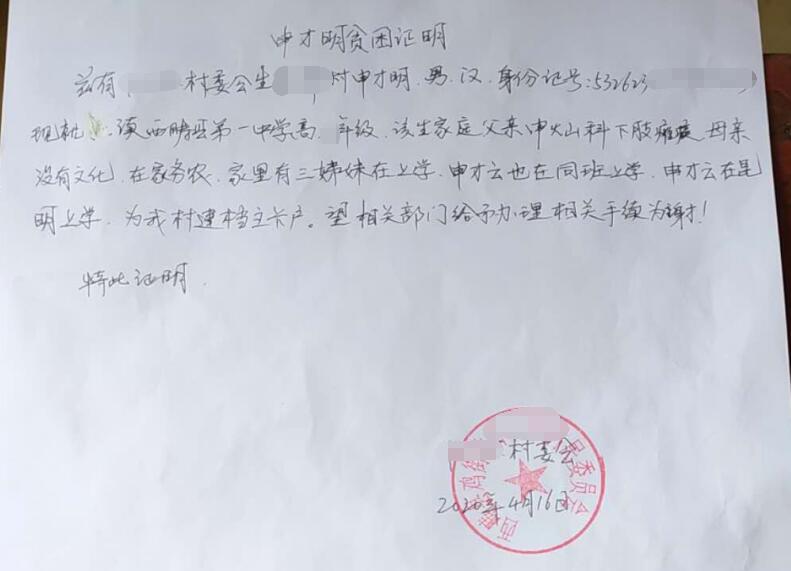 申才明贫困证明
兹有 村委会生 对申才明、男、汉、身份证号:532623
现就 滇西畴县第一中学高 年级、该生家庭父亲申火山科下肢瘫痪 母亲
没有文化、在家务农、家里有三姊妹在上学、申才云也在同班上学、申才云在昆
明上学、为我村建档立卡户。望相关部门给予办理相关手续为谢!
特此证明、
村委会
2020年4月16日
西畴 鸡街 民委员会